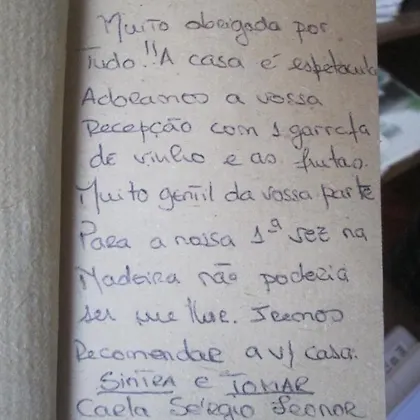 Muito obrigada por
Tudo!! A casa é espetacula
Adoramos a vossa
Recepção com 1 garrafa
de vinho e as frutas.
Muito gentil da vossa parte
Para a nossa 1ª vez na
Madeira não poderia
ser melhor. Iremos
Recomendar a v/ casa.
Sintra e TOMAR
Carla Sérgio Leonor